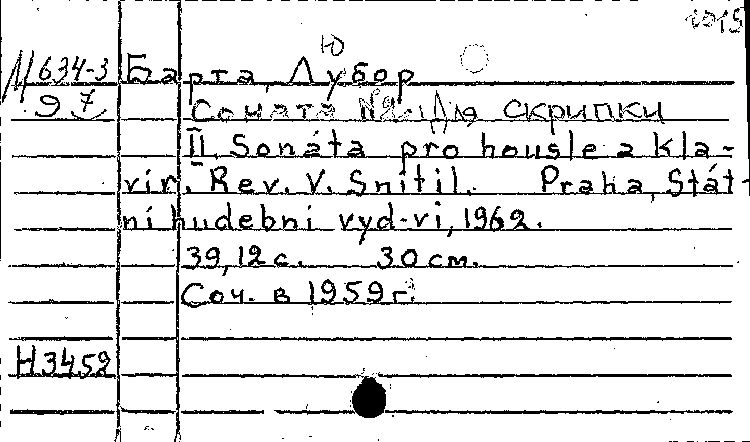 1015
Ю
М 634-3 Барта, Лубор
97 Соната №2 для скрипки
II. Sonáta pro housle a kla-
vír. Rev. V. Snítil. Praha, Stát-
ní hudební vyd-vi, 1962.
39, 12 с. 30 см.
Соч. в 1959 г.
Н3452